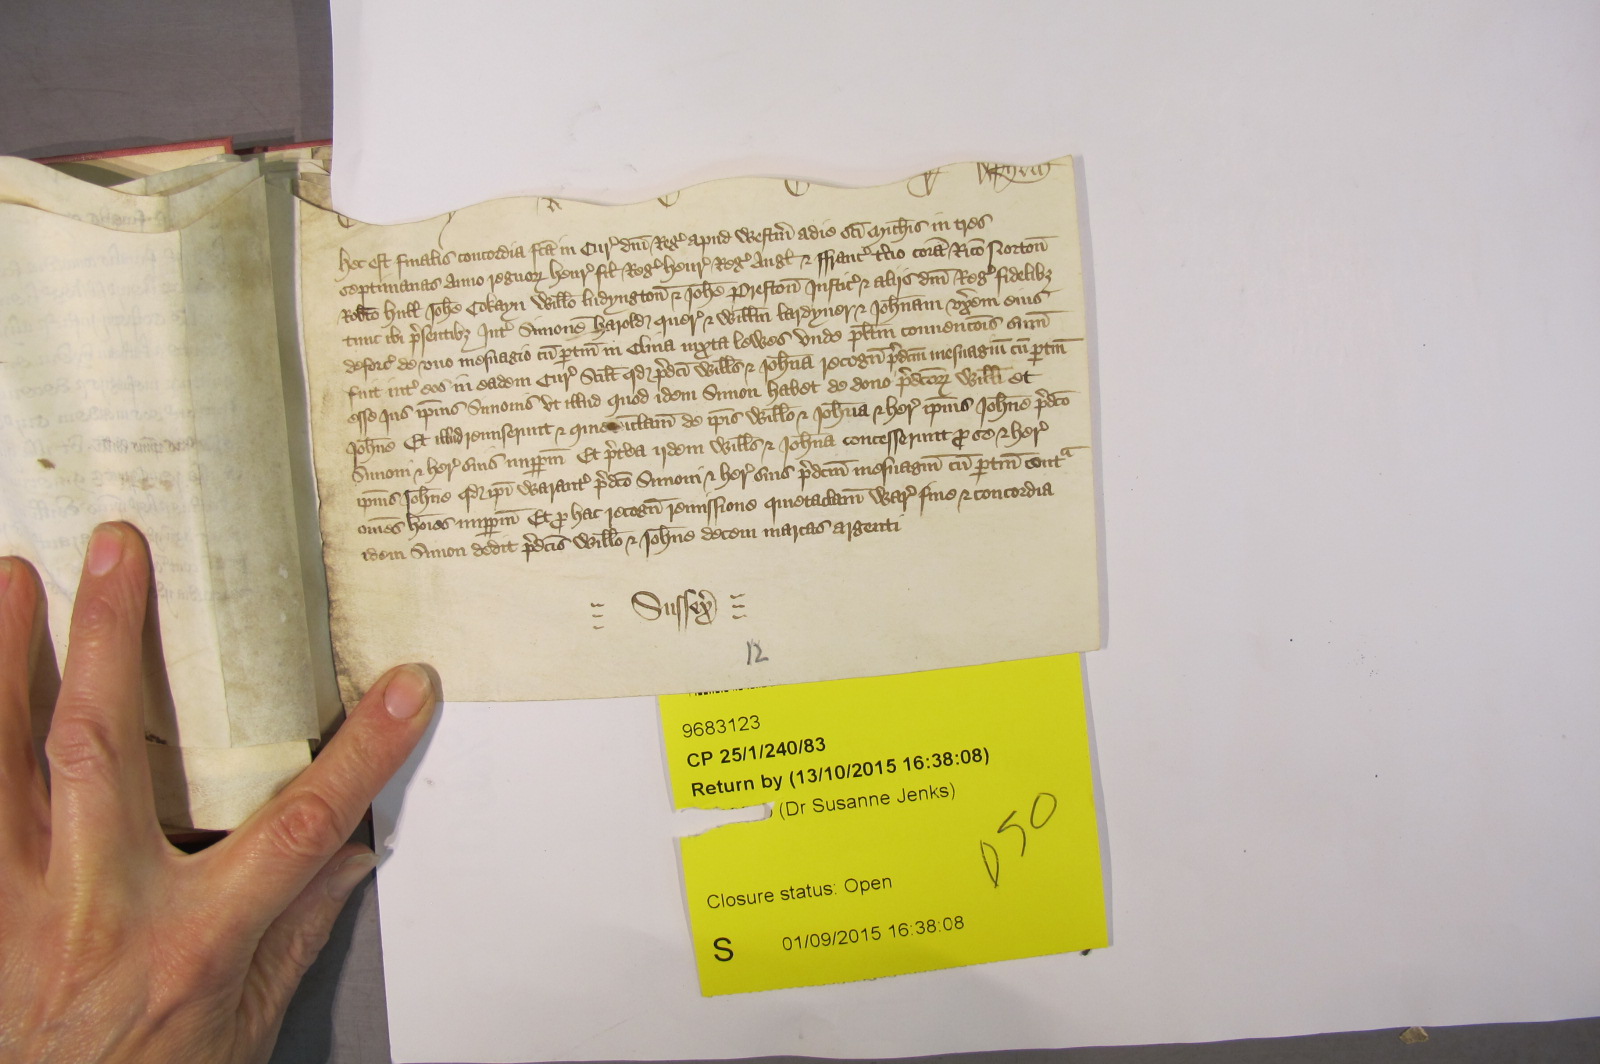 Hec est finalis concordia fca in Cur dni Reg apud Westm a die sci Michis in tres
septimanas Anno regnor Henr fil Reg Henr Reg Angl & Franc tcio coram Rico Norton
Robto Hull Iohe Cokayn Willo Ludyngton & Iohe Preston Iustic & aliis dni Reg fidelibz
tunc ibi psentibz Int Simone Harold quer & Willm Lardyner & Iohnam uxem eius
deforc de uno mesuagio cu ptin in Cliua iuxta Lewes Unde plitm convencois sum
fuit int eos in eadem Cur Scilt qd pdci Wills & Iohna recogn pdcm mesuagiu cu ptin
esse ius ipius Simonis Ut illud quod idem Simon habet de dono pdcor Willi et
Iohne Et illud remiserunt & quietclam de ipis Willo & Iohna & her ipius Iohne pdco
Simoni & her suis imppm Et ptea iidem Wills & Iohna concesserunt p se & her
ipius Iohne qd ipi Warant pdco Simoni & her suis pdcm mesuagiu cu ptin cont
omes hoies imppm Et p hac recogn remissione quietaclam War fine & concordia
idem Simon dedit pdcis Willo & Iohne decem marcas argenti
Sussex
12
9683123
CP 25/1/240/83
Return by (13/10/2015 16:38:08)
(Dr Susanne Jenks)
D50
Closure status: Open
S 01/09/2015 16:38:08